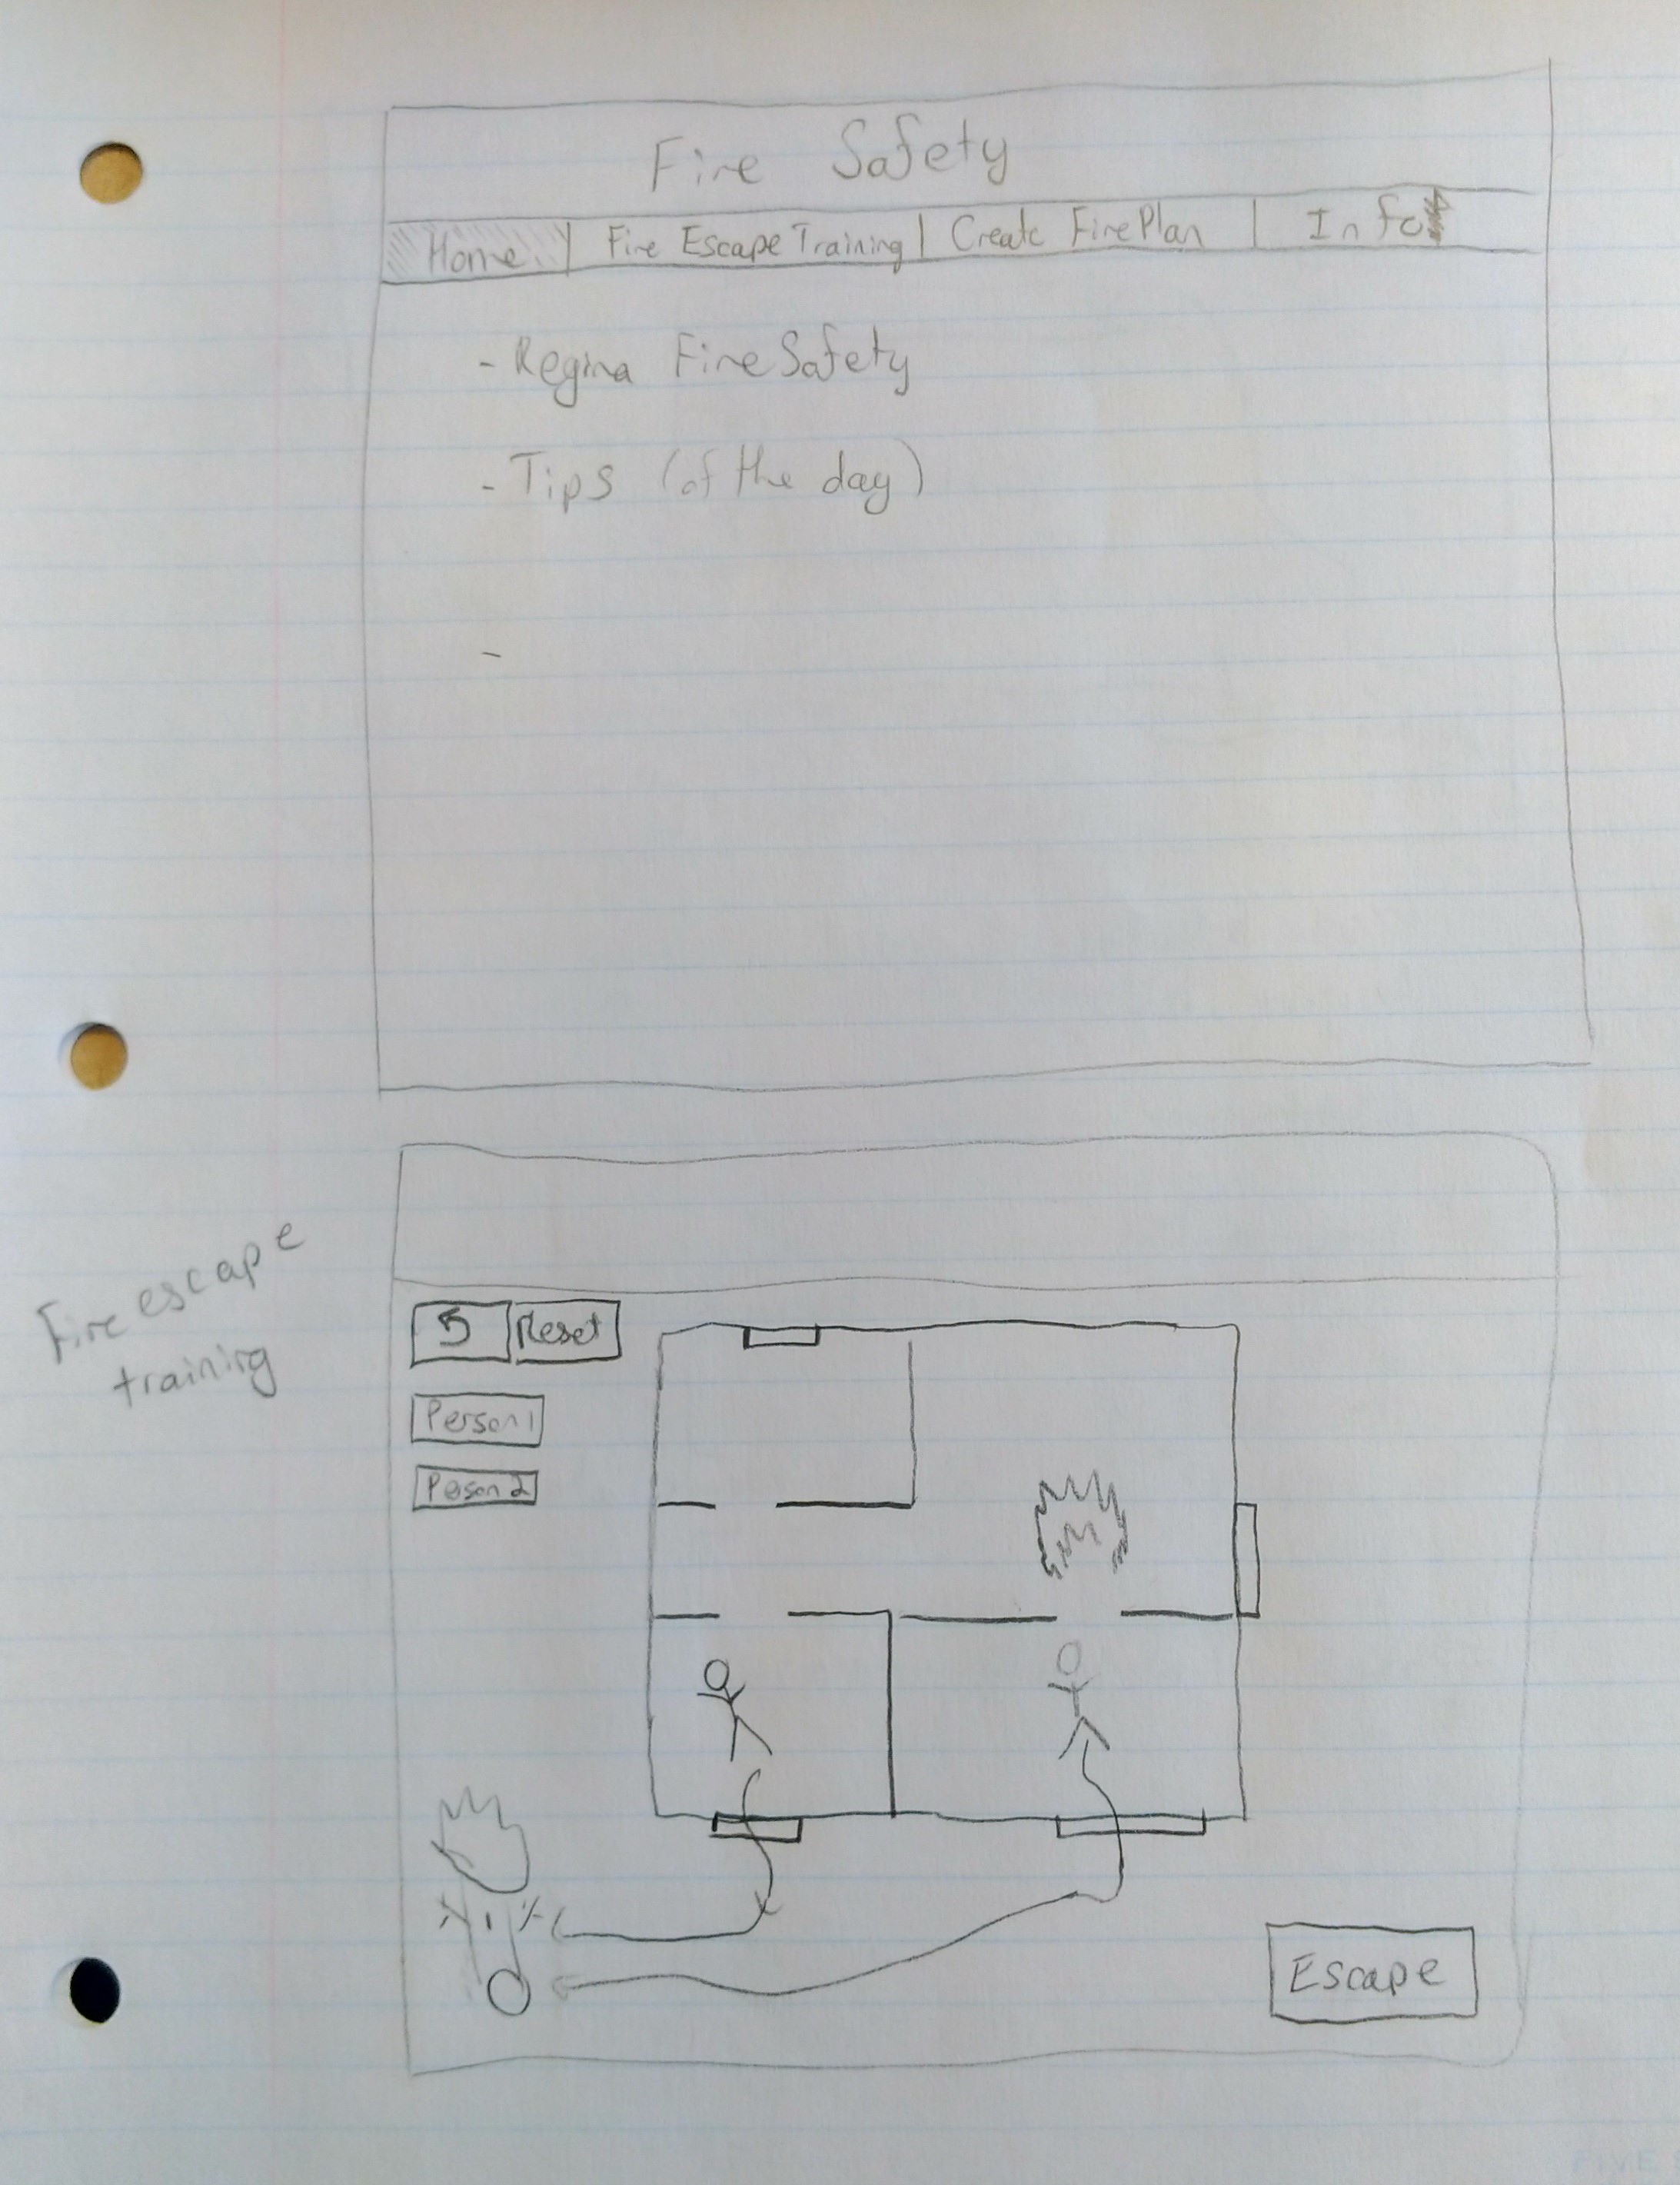 Fire Safety
Home | Fire Escape Training | Create Fire Plan | Info
- Regina Fire Safety
- Tips (of the day)
-
Fire escape
training
Reset
Person 1
Person 2
Escape
FIVE